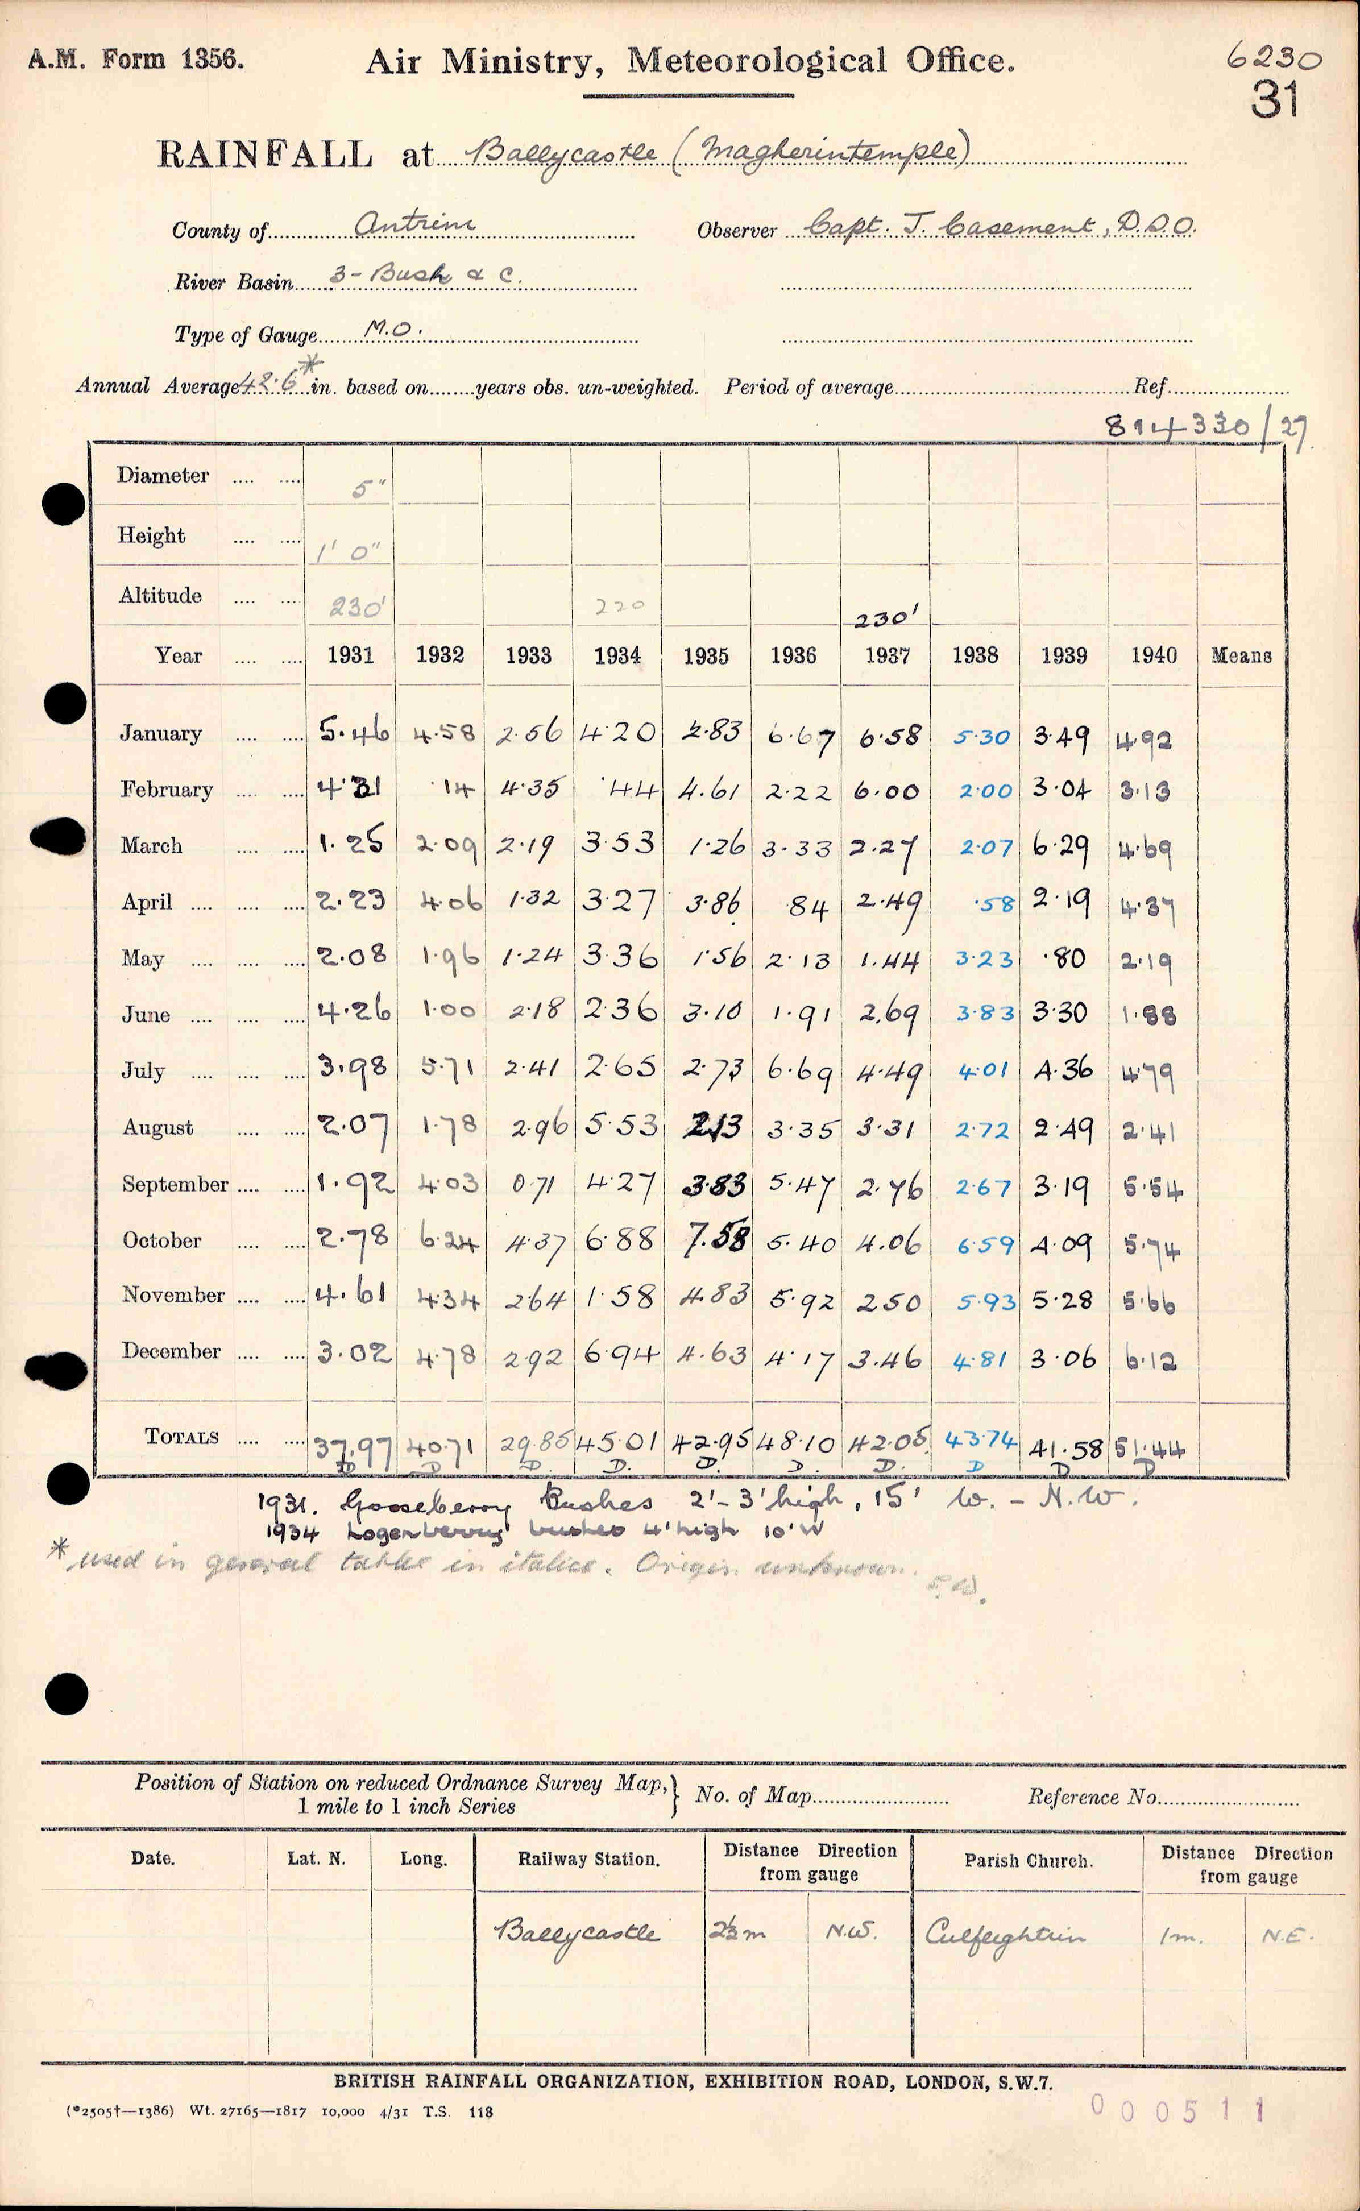 A.M. Form 1356. Air Ministry, Meteorological Office. 6230
31
RAINFALL at Ballycastle (Magherintemple)
County of Antrim Observer Capt. J. Casement, D.S.O.
River Basin 3 - Bush & C.
Type of Gauge M.O.
Annual Average 42.6* in. based on years obs. un-weighted. Period of average Ref.
814330/27
Diameter 5"
Height 1' 0"
Altitude 230' 220 230'
Year 1931 1932 1933 1934 1935 1936 1937 1938 1939 1940 Means
January 5.46 4.58 2.56 4.20 2.83 6.67 6.58 5.30 3.49 4.92
February 4.31 .14 4.35 .44 4.61 2.22 6.00 2.00 3.04 3.13
March 1.25 2.09 2.19 3.53 1.26 3.33 2.27 2.07 6.29 4.69
April 2.23 4.06 1.32 3.27 3.86 .84 2.49 .58 2.19 4.37
May 2.08 1.96 1.24 3.36 1.56 2.13 1.44 3.23 .80 2.19
June 4.26 1.00 2.18 2.36 3.10 1.91 2.69 3.83 3.30 1.88
July 3.98 5.71 2.41 2.65 2.73 6.69 4.49 4.01 4.36 4.79
August 2.07 1.78 2.96 5.53 2.13 3.35 3.31 2.72 2.49 2.41
September 1.92 4.03 0.71 4.27 3.83 5.47 2.76 2.67 3.19 5.54
October 2.78 6.24 4.37 6.88 7.58 5.40 4.06 6.59 4.09 5.74
November 4.61 4.34 2.64 1.58 4.83 5.92 2.50 5.93 5.28 5.66
December 3.02 4.78 2.92 6.94 4.63 4.17 3.46 4.81 3.06 6.12
TOTALS 37.97 40.71 29.85 45.01 42.95 48.10 42.05 43.74 41.58 51.44
D D D. D. D. D. D. D D D
1931. Gooseberry Bushes 2'- 3' high, 15' W. - N.W.
1934 Logenberry bushes 4' high 10' W
* used in general table in italics. Origin unknown.
Position of Station on reduced Ordnance Survey Map, 1 mile to 1 inch Series } No. of Map Reference No.
Date. Lat. N. Long. Railway Station. Distance Direction from gauge Parish Church. Distance Direction from gauge
Ballycastle 2½ m N.W. Culfeightrin 1 m. N.E.
BRITISH RAINFALL ORGANIZATION, EXHIBITION ROAD, LONDON, S.W.7.
(*2505†—1386) Wt. 27165—1817 10,000 4/31 T.S. 118
000511